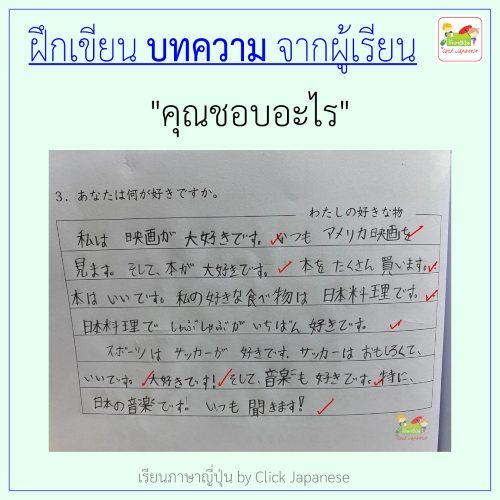 ฝึกเขียน บทความ จากผู้เรียน
Click Japanese
"คุณชอบอะไร"
3. あなたは何が好きですか。
わたしの好きな物
私は 映画が 大好きです。いつも アメリカ映画を
見ます。そして、本が 大好きです。本を たくさん 買います。
本は いいです。私の好きな食べ物は 日本料理です。
日本料理で しゃぶしゃぶが いちばん 好きです。
スポーツは サッカーが 好きです。サッカーは おもしろくて、
いいです。大好きです!そして、音楽も 好きです。特に、
日本の音楽です。いつも 聞きます!
Click Japanese
เรียนภาษาญี่ปุ่น by Click Japanese